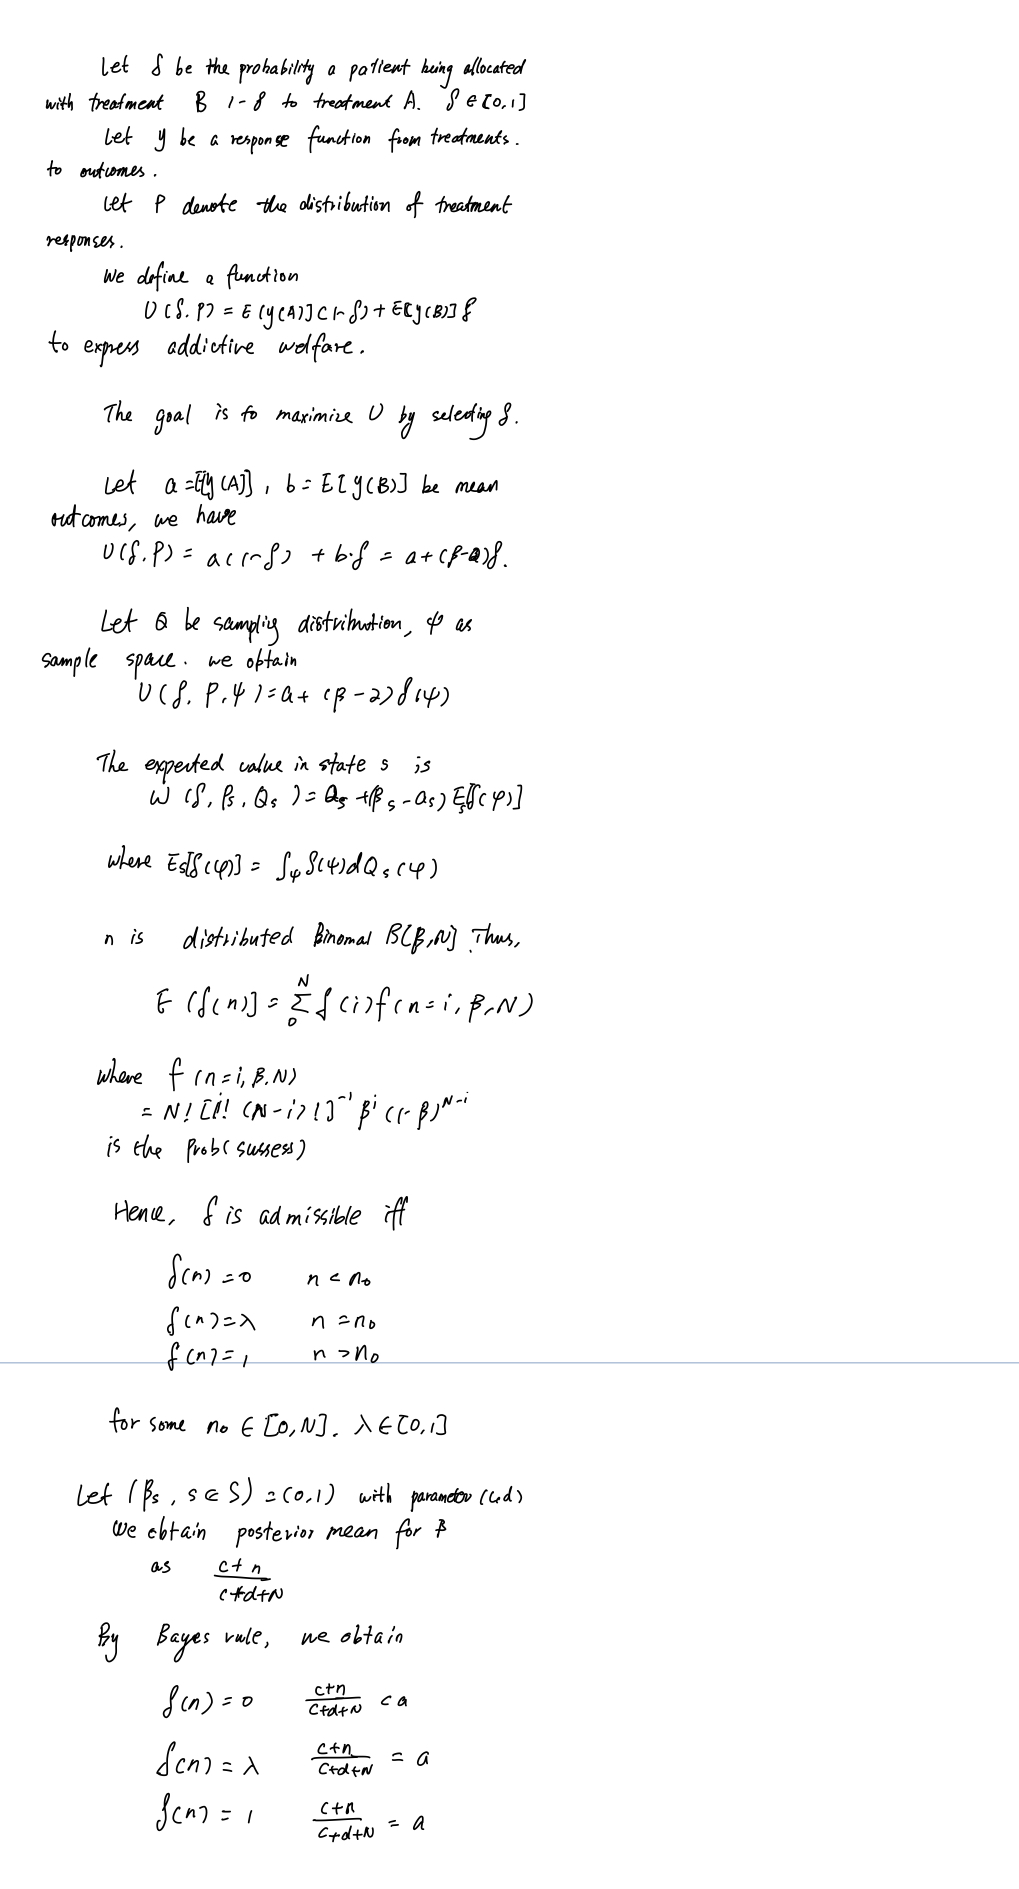 Let δ be the probability a patient being allocated
with treatment B 1-δ to treatment A. δ∈[0,1]
Let y be a response function from treatments.
to outcomes.
Let P denote the distribution of treatment
responses.
We define a function
U(δ.P) = E[y(A)](1-δ)+E[y(B)]δ
to express addictive welfare.
The goal is to maximize U by selecting δ.
Let a=E[y(A)], b=E[y(B)] be mean
outcomes, we have
U(δ.P) = a(1-δ) + b·δ = a+(β-a)δ.
Let Q be sampling distribution, ψ as
sample space. we obtain
U(δ, P, ψ)=a+ (β-2)δ(ψ)
The expected value in state s is
W (δ, Ps, Qs)= as +(βs-as) Es[δ(φ)]
where Es[δ(φ)] = ∫ψ δ(ψ)dQs(φ)
n is distributed Binomal B[β,N] Thus,
E [δ(n)] = Σ₀ᴺ δ(i)f(n=i, β,N)
where f (n=i, β.N)
= N! [i! (N-i)!]⁻¹ βⁱ(1-β)ᴺ⁻ⁱ
is the Prob(sussess)
Hence, δ is admissible iff
δ(n) =0 n<n₀
δ(n)=λ n=n₀
δ(n)=1 n>n₀
for some n₀ ∈ [0,N]. λ∈[0,1]
Let (βs, s∈S) =(0,1) with parameter (c,d)
We obtain posterior mean for β
as c+n / c+d+N
By Bayes rule, we obtain
δ(n) = 0 c+n / c+d+N < a
δ(n) = λ c+n / c+d+N = a
δ(n) = 1 c+n / c+d+N = a